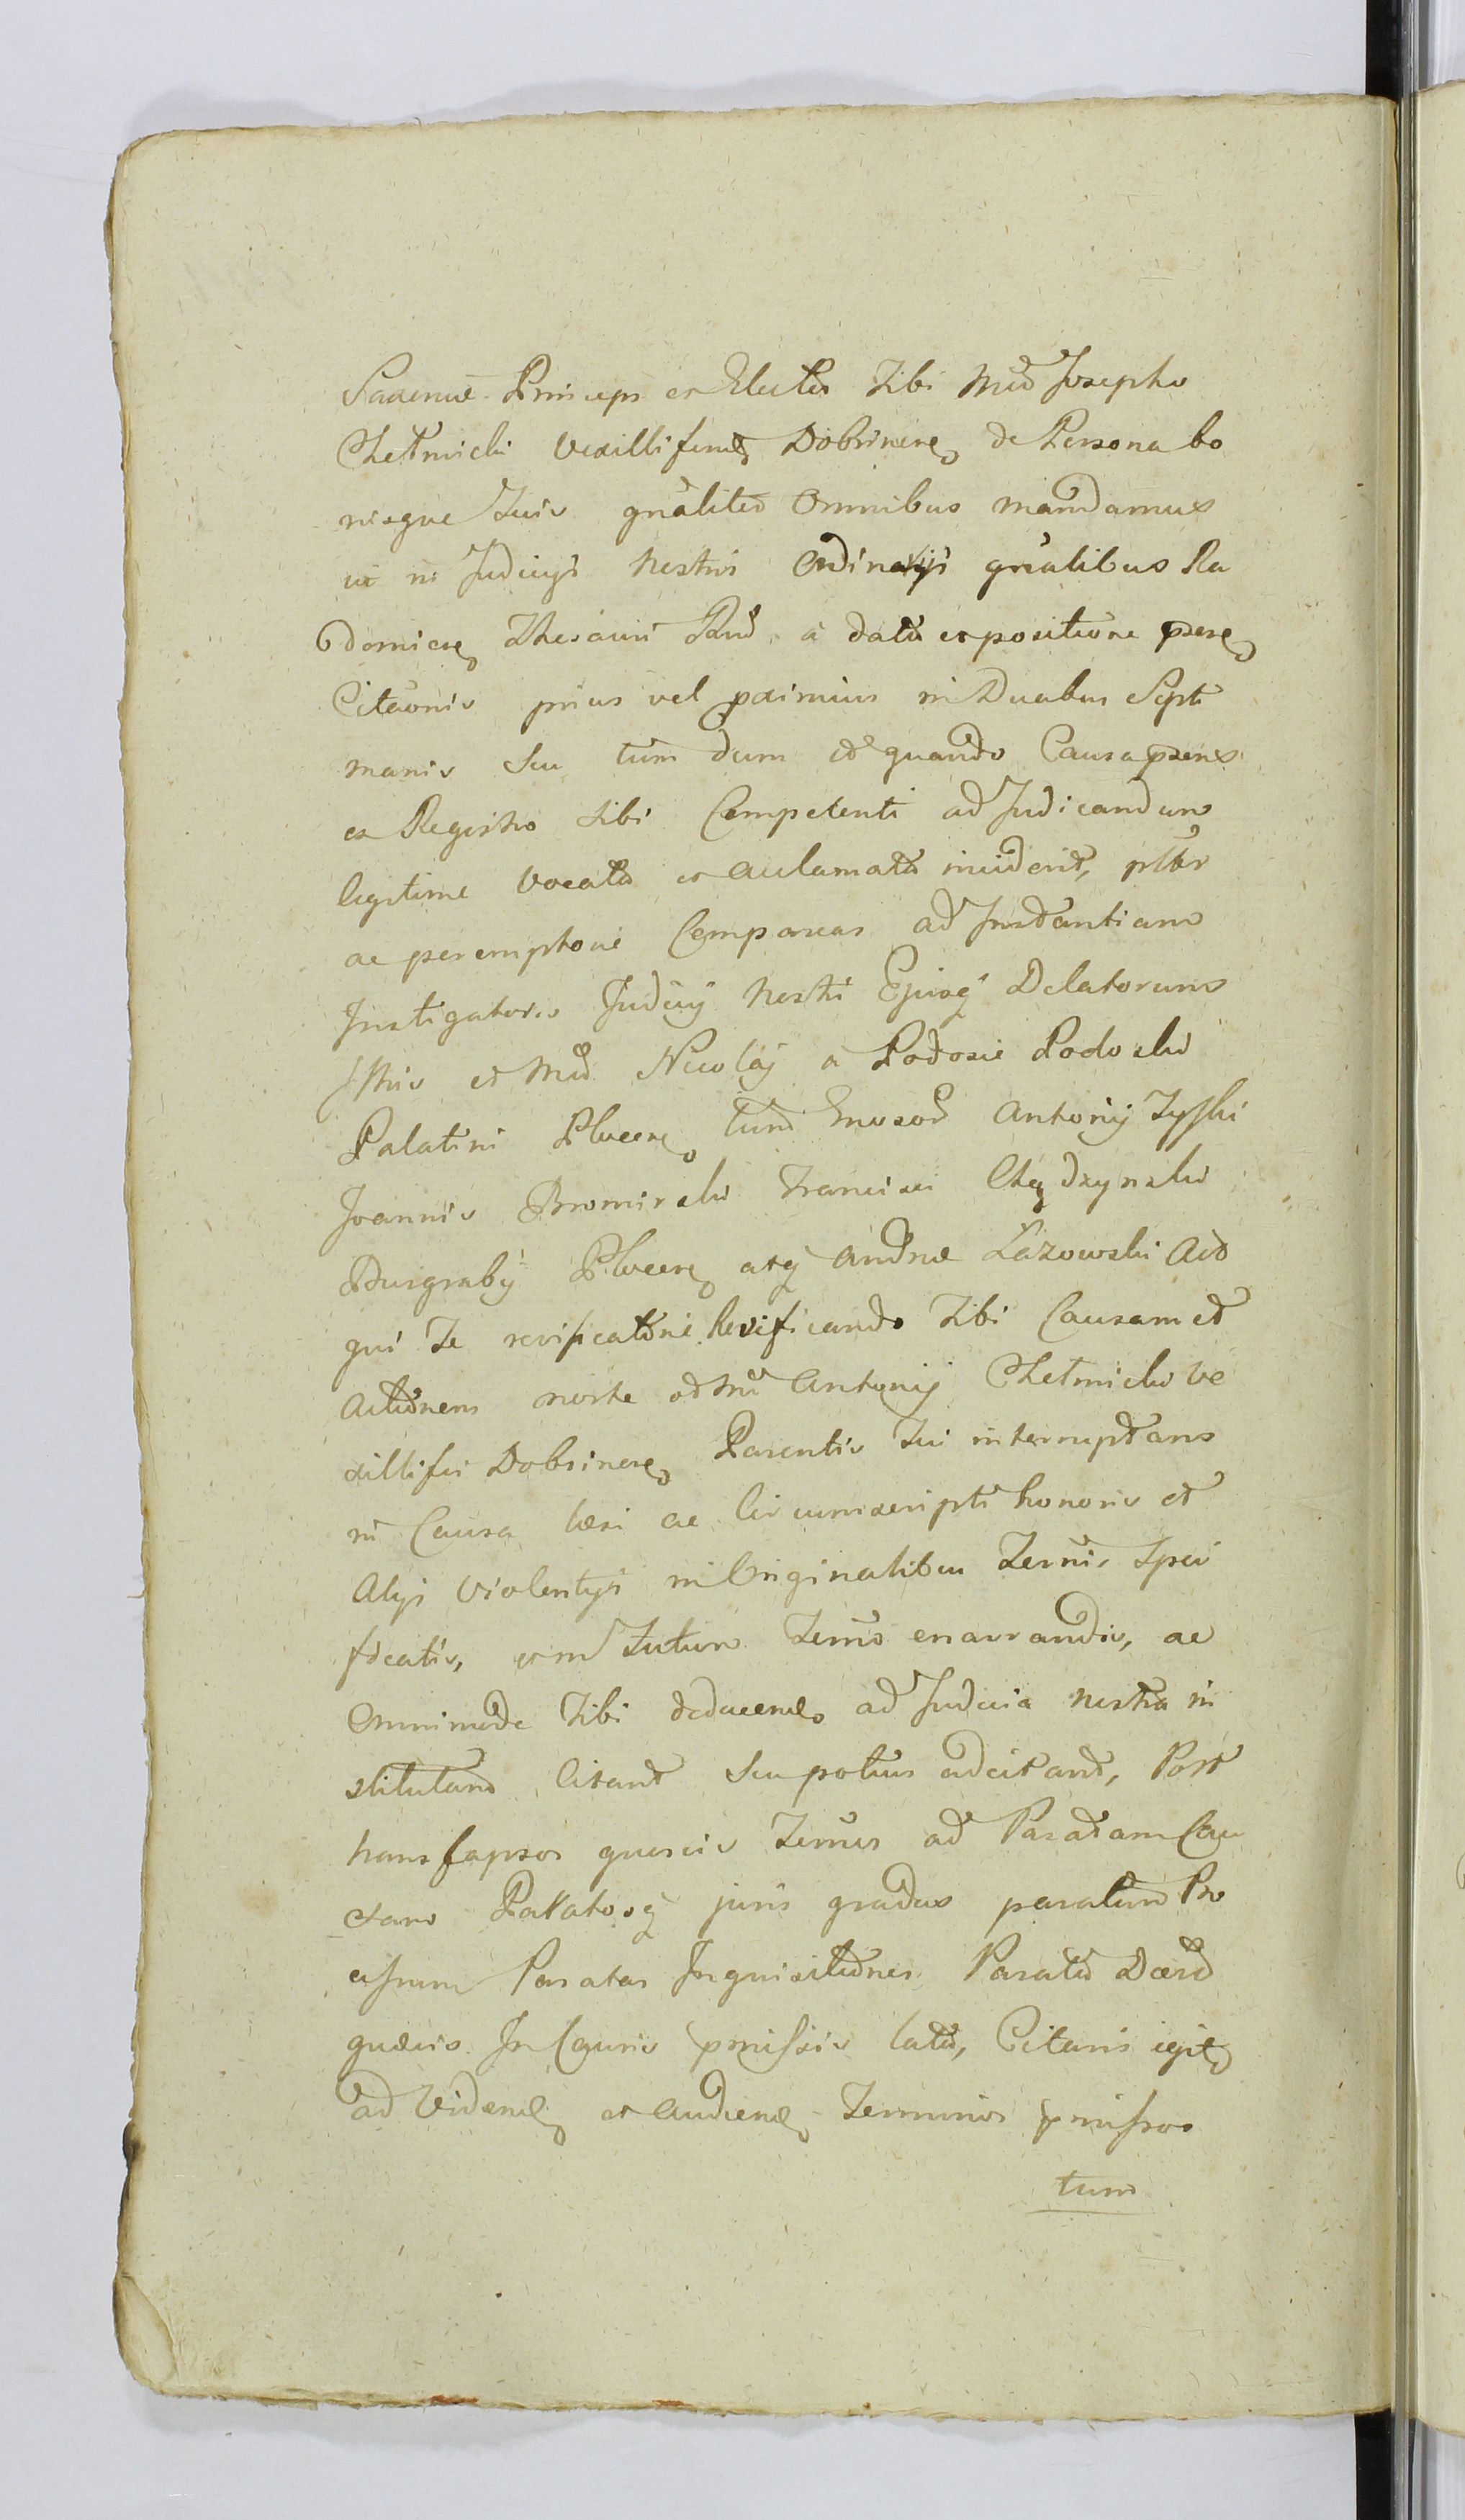 Saxoniae Princeps et Elector Tibi Mco Josepho
Chełmicki Vexillifero Dobrinens de Persona bo
nisque Tuis gnaliter Omnibus mandamus
ut in Judicijs Nostris Ordinarijs gnalibus Ra
domiens Thesauri Rni a data et positione pns
Citaonis prius vel proximius in Duabus Septi
manis Seu tum dum et quando Causa praesens
ex Registro Sibi Competenti ad Judicandum
legitime Vocata et acclamata inciderit, plter
ac peremptorie Compareas ad Instantiam
Instigatoris Judicij Nostri Ejusq Delatorum
Illris et Mci Nicolaj a Podosie Podoski
Palatini Plocens tum Gnosor Antonij Zyski
Joannis Bromirski Francisci Chądzynski
Burgrabij Plocens atq Andreae Łazowski Act
qui Te revificatione Revificando Tibi Causam et
Actionem morte olim Mci Antonij Chełmicki Ve
xilliferi Dobrinens Parentis Tui interruptam
in Causa laesi ac Circumscripti honoris et
Alijs Violentijs in Originalibus Termis Speci
ficatis, et in Futuro Termo enarrandis, ac
Omnimode Tibi deducendis ad Judicia nostra in
stitutam Citant Seu potius adcitant, Post
transfapsos quosvis Termos ad Paratam Cau
sam Paratosq juris gradus paratum Pro
cessum Paratas Inquisitiones Parata Decreta
quaevis In Causis praemissis lata, Citaris igitur
ad Videndum et Audiendum Terminos praemissos
tum